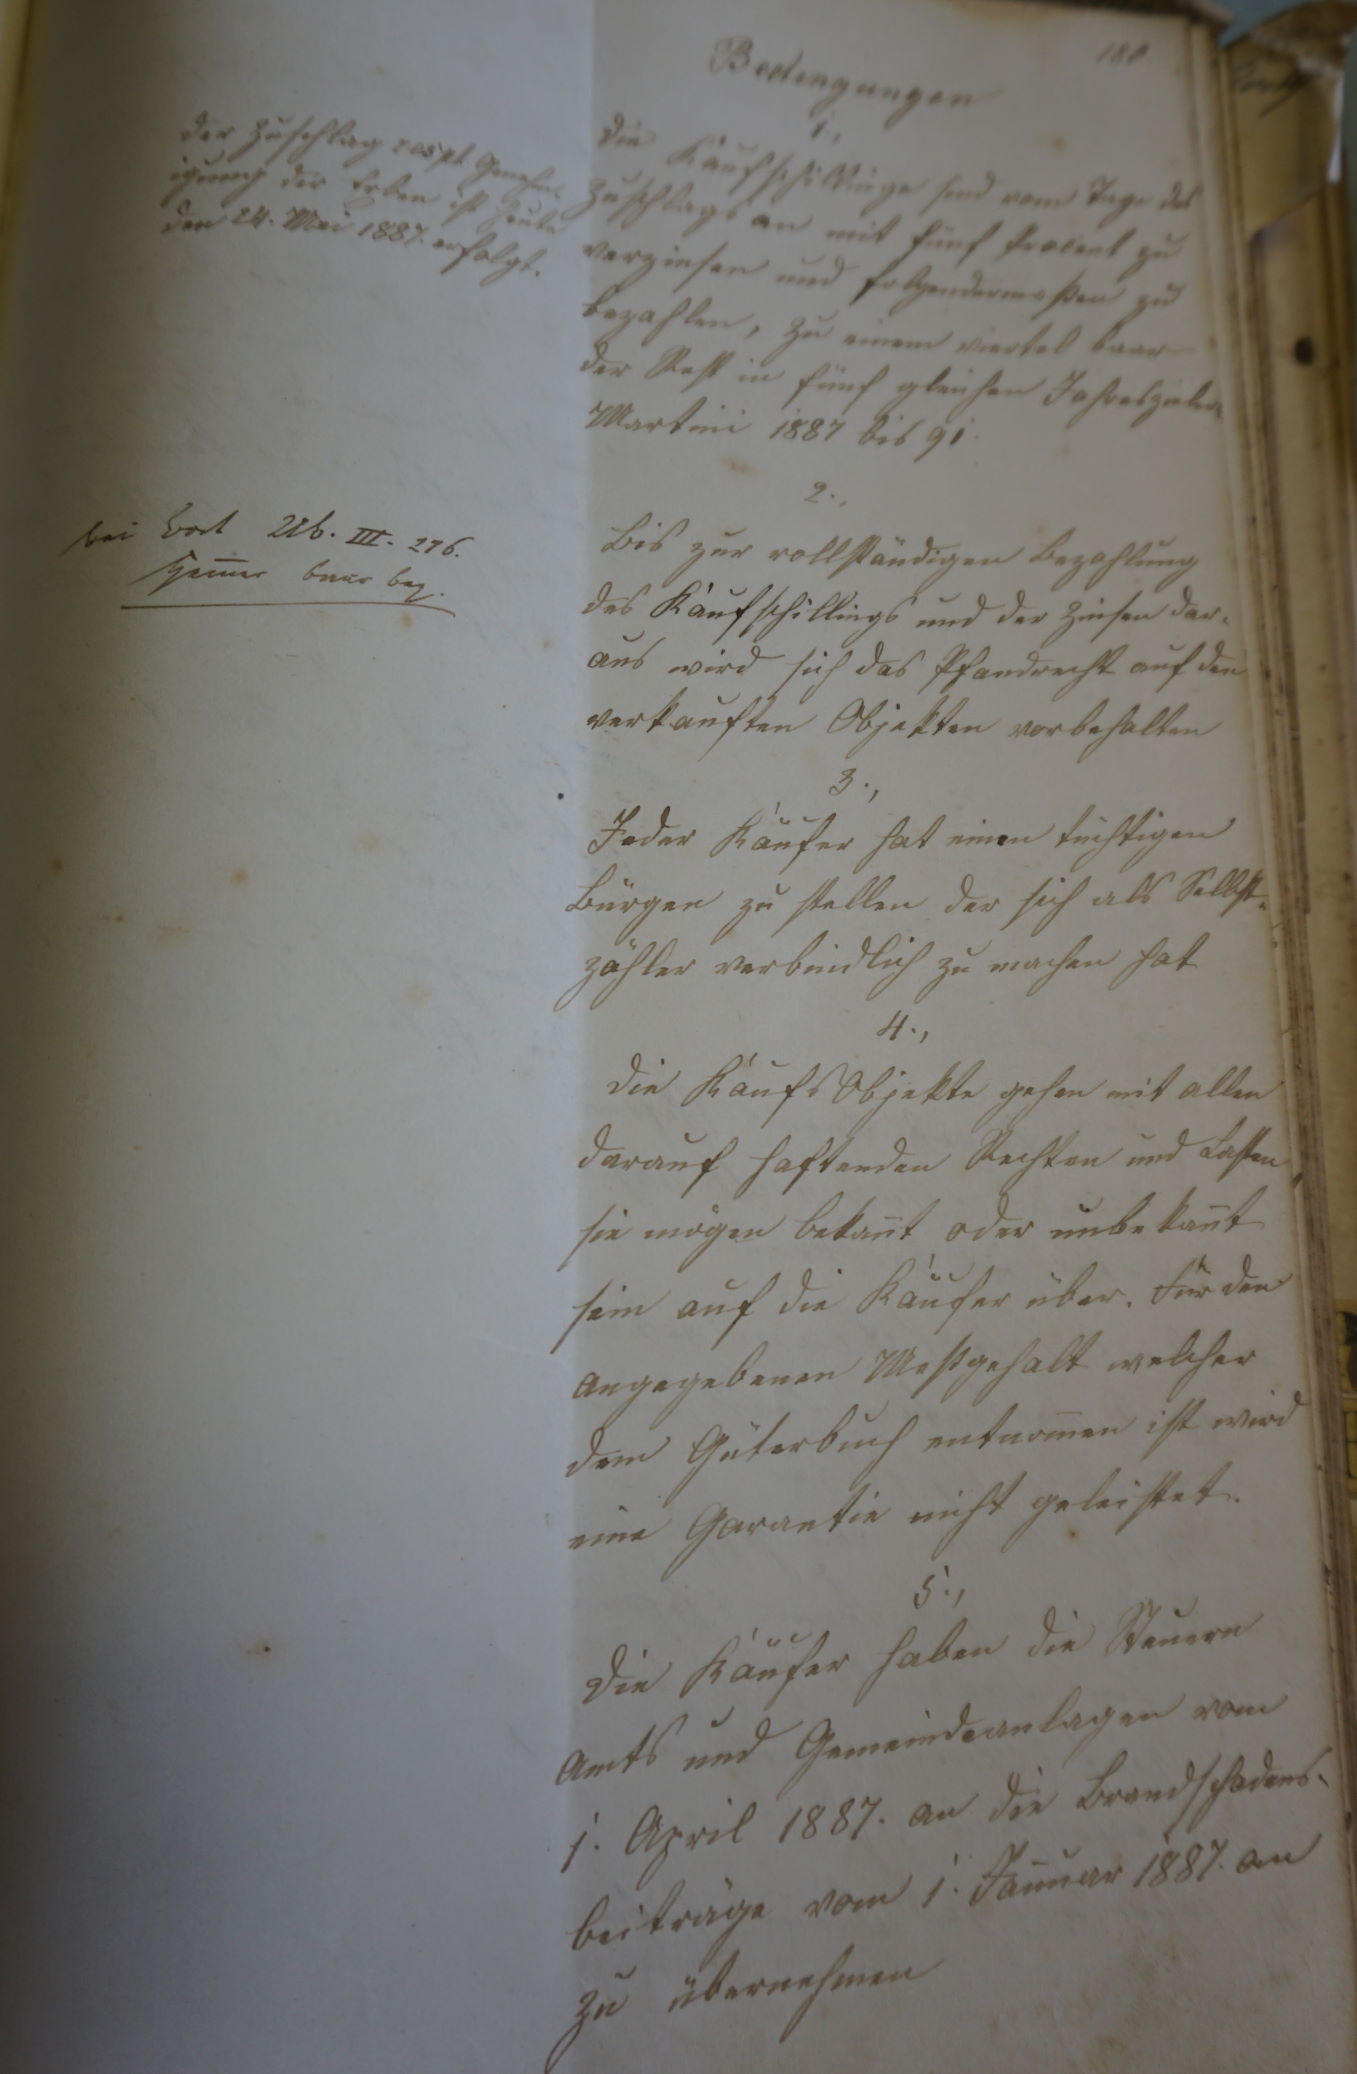 180
Bedingungen
1.,
Die Kaufschillinge sind vom Tage des
Zuschlags an mit fünf Procent zu
verzinsen und folgendermaßen zu
bezahlen, zu einem viertel baar
der Rest in fünf gleichen Jahreszieler
Martini 1887 bis 91.
2.,
Bis zur vollständigen Bezahlung
des Kaufschillings und der Zinsen dar-
aus wird sich das Pfandrecht auf den
verkauften Objekten vorbehalten
3.,
Jeder Käufer hat einen tüchtigen
Bürgen zu stellen der sich als Selbst-
zähler verbindlich zu machen hat
4.,
Die KaufsObjekte gehen mit allen
darauf haftenden Rechten und Lasten
sie mögen bekan̄t oder unbekan̄t
sein auf die Käufer über. Für den
angegebenen Meßgehalt welcher
dem Güterbuch entnom̄en ist wird
eine Garantie nicht geleistet.
5.,
Die Käufer haben die Steuern
Amts und Gemeindeanlagen vom
1. April 1887. an die Brandschadens-
beiträge vom 1. Januar 1887. an
zu übernehmen
Der Zuschlag respt. Genehm-
igung der Erben ist heute
den 24. Mai 1887. erfolgt.
bei Ub. III. 276.
baar bez.